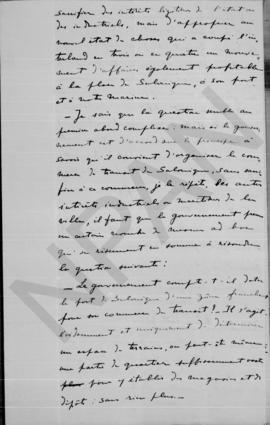 sacrifier des intérêts légitimes de l'état ou
des industriels, mais d'approprier au
nouvel état de choses qui a coupé l'in-
terland en trois ou en quatre un mouve-
ment d'affaires également profitable
à la place de Salonique, à son port
et à notre marine.
— Je sais que la question semble au
premier abord complexe; mais si le gouver-
nement est d'accord sur le principe à
savoir qu'il convient d'organiser le com-
merce de transit de Salonique, sans
à ce commerce, je le répète, les autres
intérêts industriels ou maritimes de la
ville, il faut que le gouvernement prenne
un certain nombre de mesures ad hoc
qui se résument en somme à résoudre
la question suivante:
— Le gouvernement compte-t-il doter
le port de Salonique d'une zône franche
pour son commerce de transit. Il s'agit
et uniquement de
un espace de terrains, ou peut-être même
une partie de quartier suffisamment vaste
pour y établir des magasins et des
dépôts: sans rien plus.—